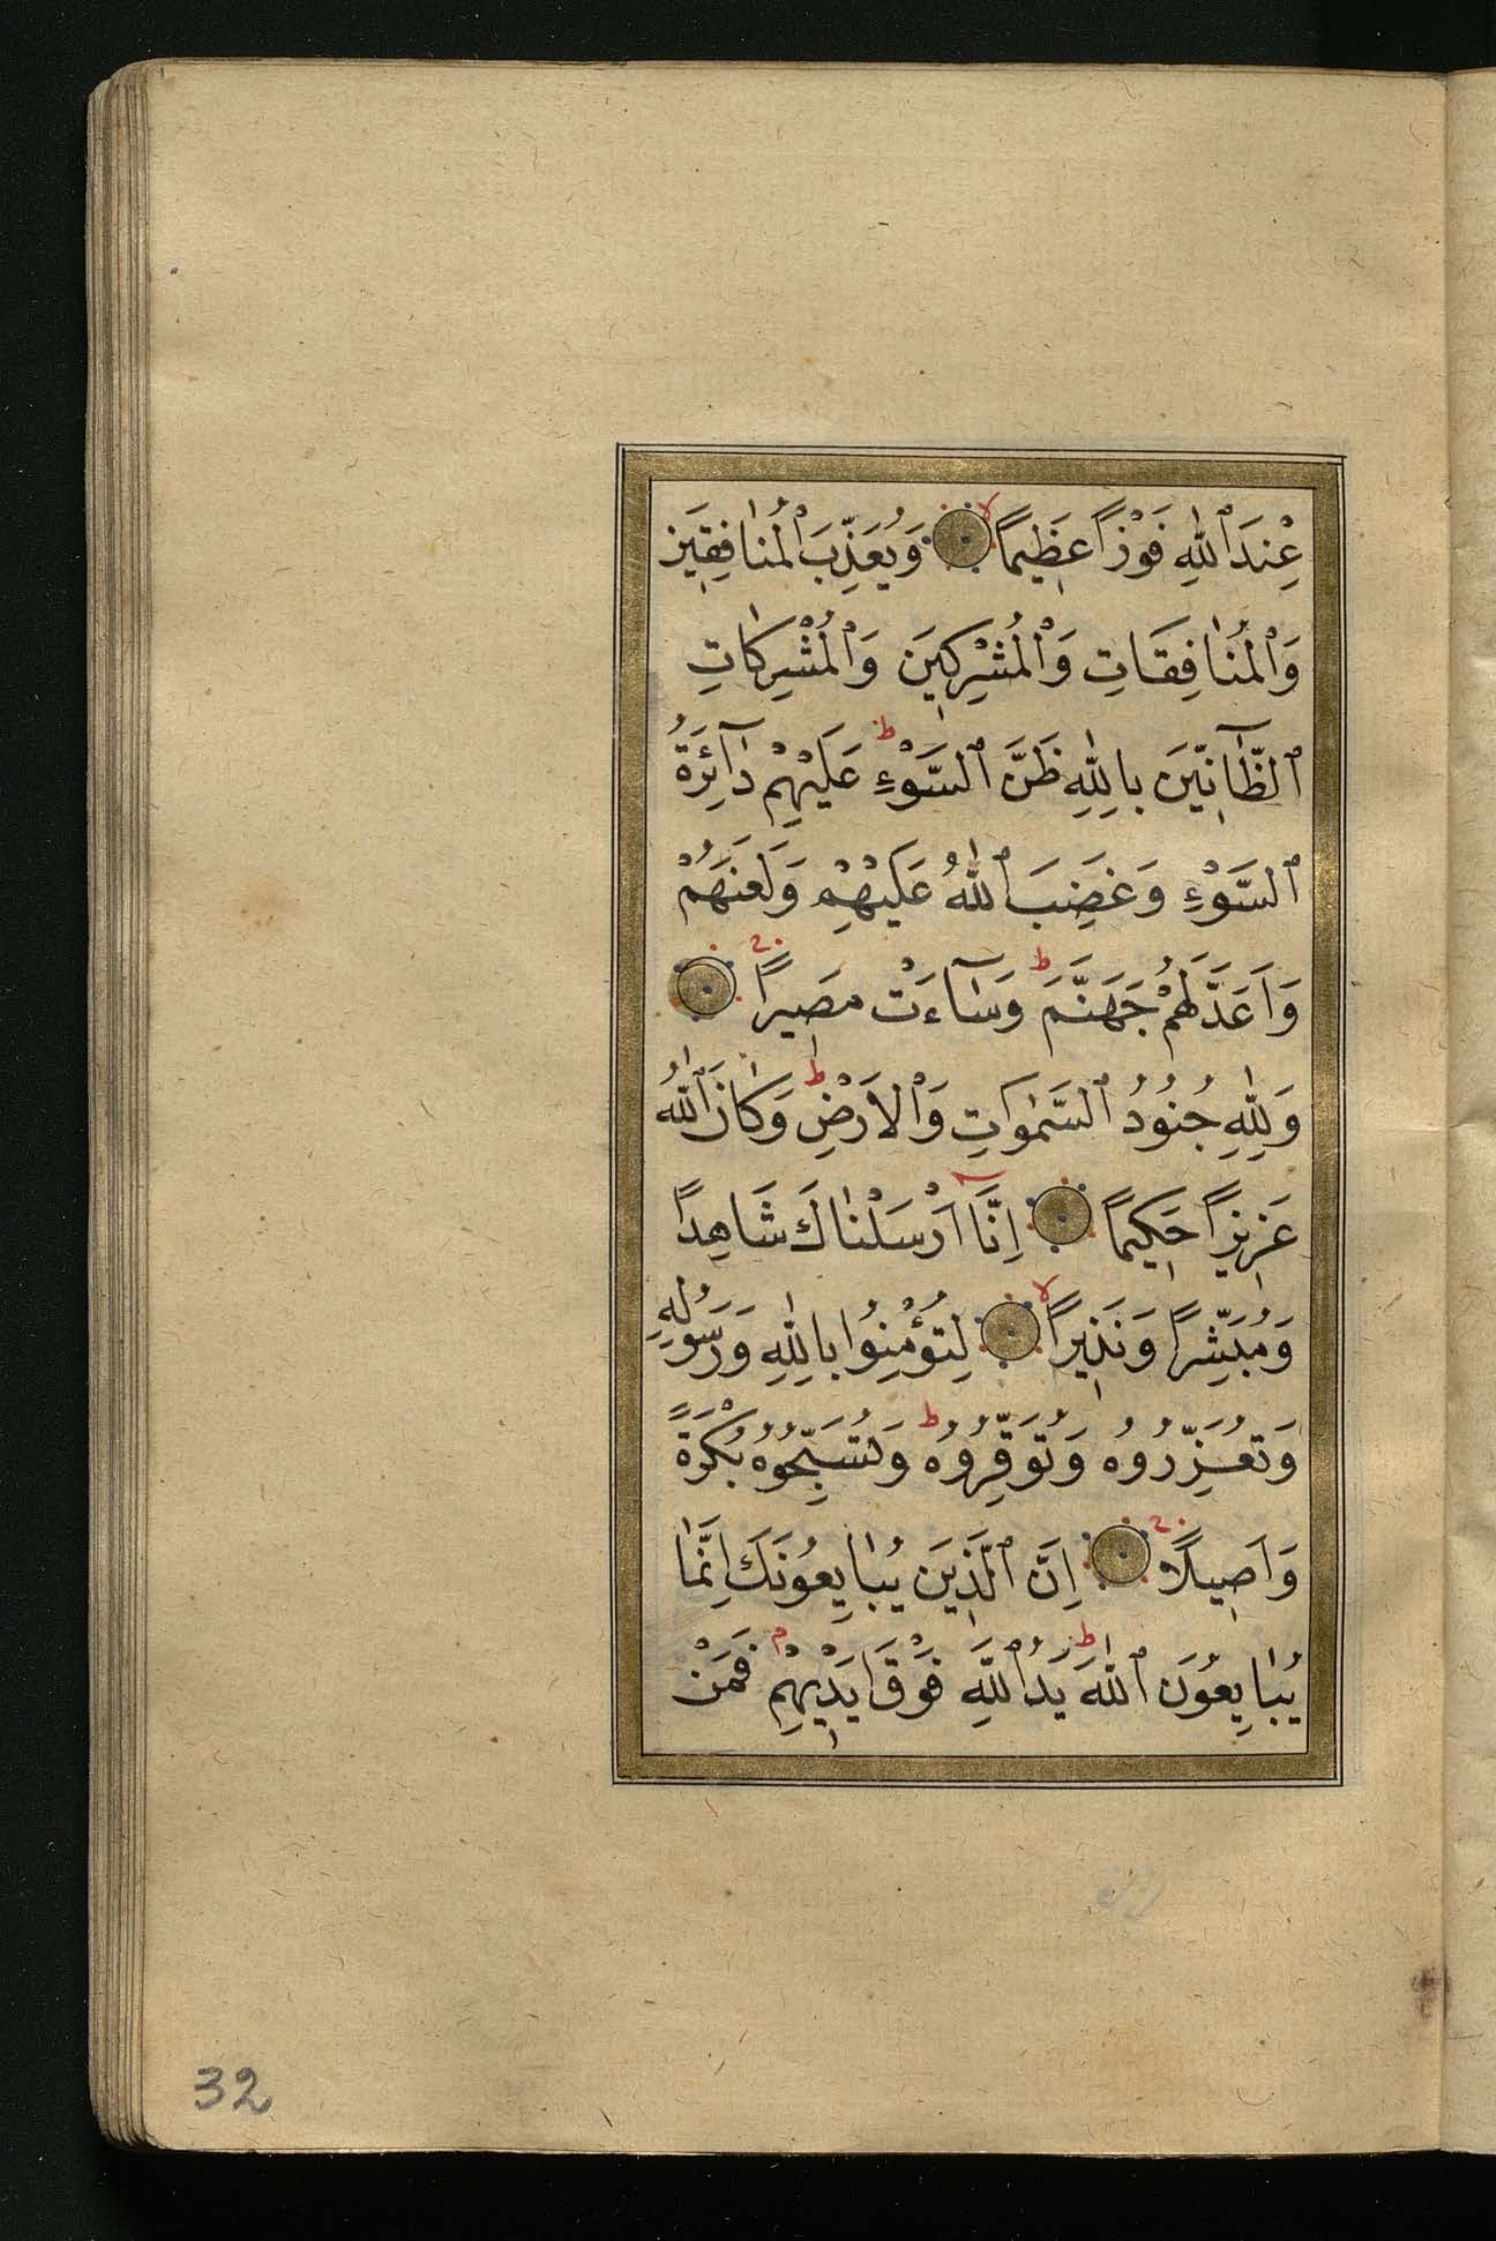 عِنْدَ ٱللّٰهِ فَوْزًا عَظِيمًا لا وَيُعَذِّبَ ٱلْمُنَافِقِينَ
وَٱلْمُنَافِقَاتِ وَٱلْمُشْرِكِينَ وَٱلْمُشْرِكَاتِ
ٱلظَّآنِّينَ بِاللّٰهِ ظَنَّ ٱلسَّوْءِ ط عَلَيْهِمْ دَآئِرَةُ
ٱلسَّوْءِ وَغَضِبَ ٱللّٰهُ عَلَيْهِمْ وَلَعَنَهُمْ
وَاَعَدَّ لَهُمْ جَهَنَّمَ ط وَسَآءَتْ مَصِيرًا
وَلِلّٰهِ جُنُودُ ٱلسَّمٰوَاتِ وَٱلْاَرْضِ ط وَكَانَ ٱللّٰهُ
عَزِيزًا حَكِيمًا اِنَّآ اَرْسَلْنَاكَ شَاهِدًا
وَمُبَشِّرًا وَنَذِيرًا لا لِتُؤْمِنُوا بِاللّٰهِ وَرَسُولِهِ
وَتُعَزِّرُوهُ وَتُوَقِّرُوهُ ط وَتُسَبِّحُوهُ بُكْرَةً
وَاَصِيلًا اِنَّ ٱلَّذِينَ يُبَايِعُونَكَ اِنَّمَا
يُبَايِعُونَ ٱللّٰهَ ط يَدُ ٱللّٰهِ فَوْقَ اَيْدِيهِمْ م فَمَنْ
32